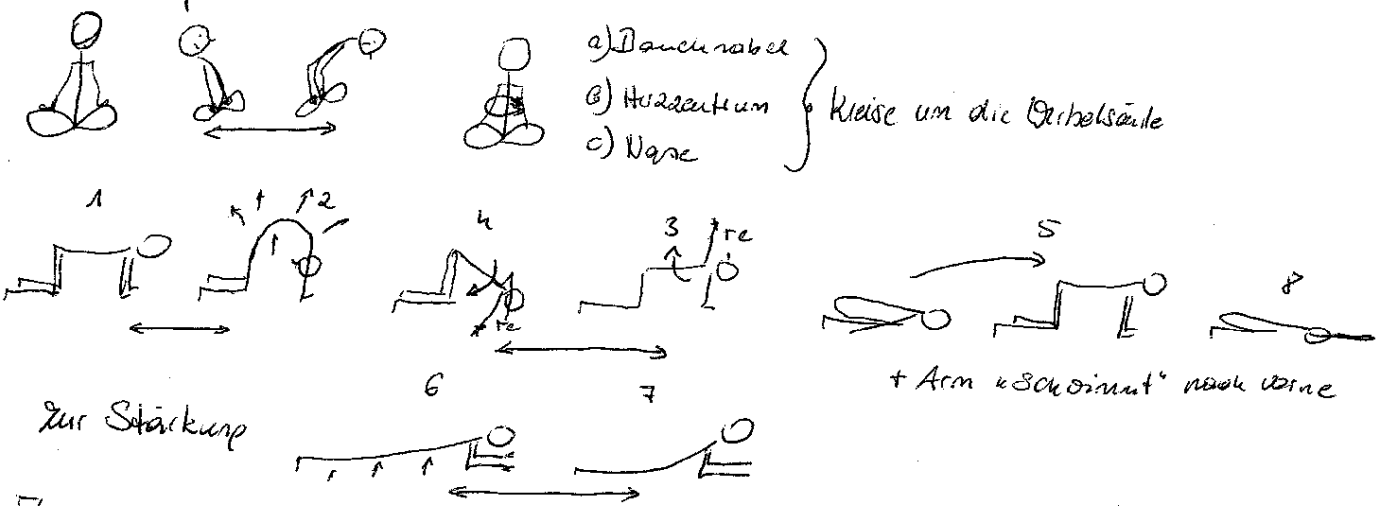 a) Bauchnabel
b) Herzzentrum
c) Nase
Kreise um die Wirbelsäule
1
1 2
4
3 re
5
8
re
+ Arm "schwimmt" nach vorne
6
7
Zur Stärkung